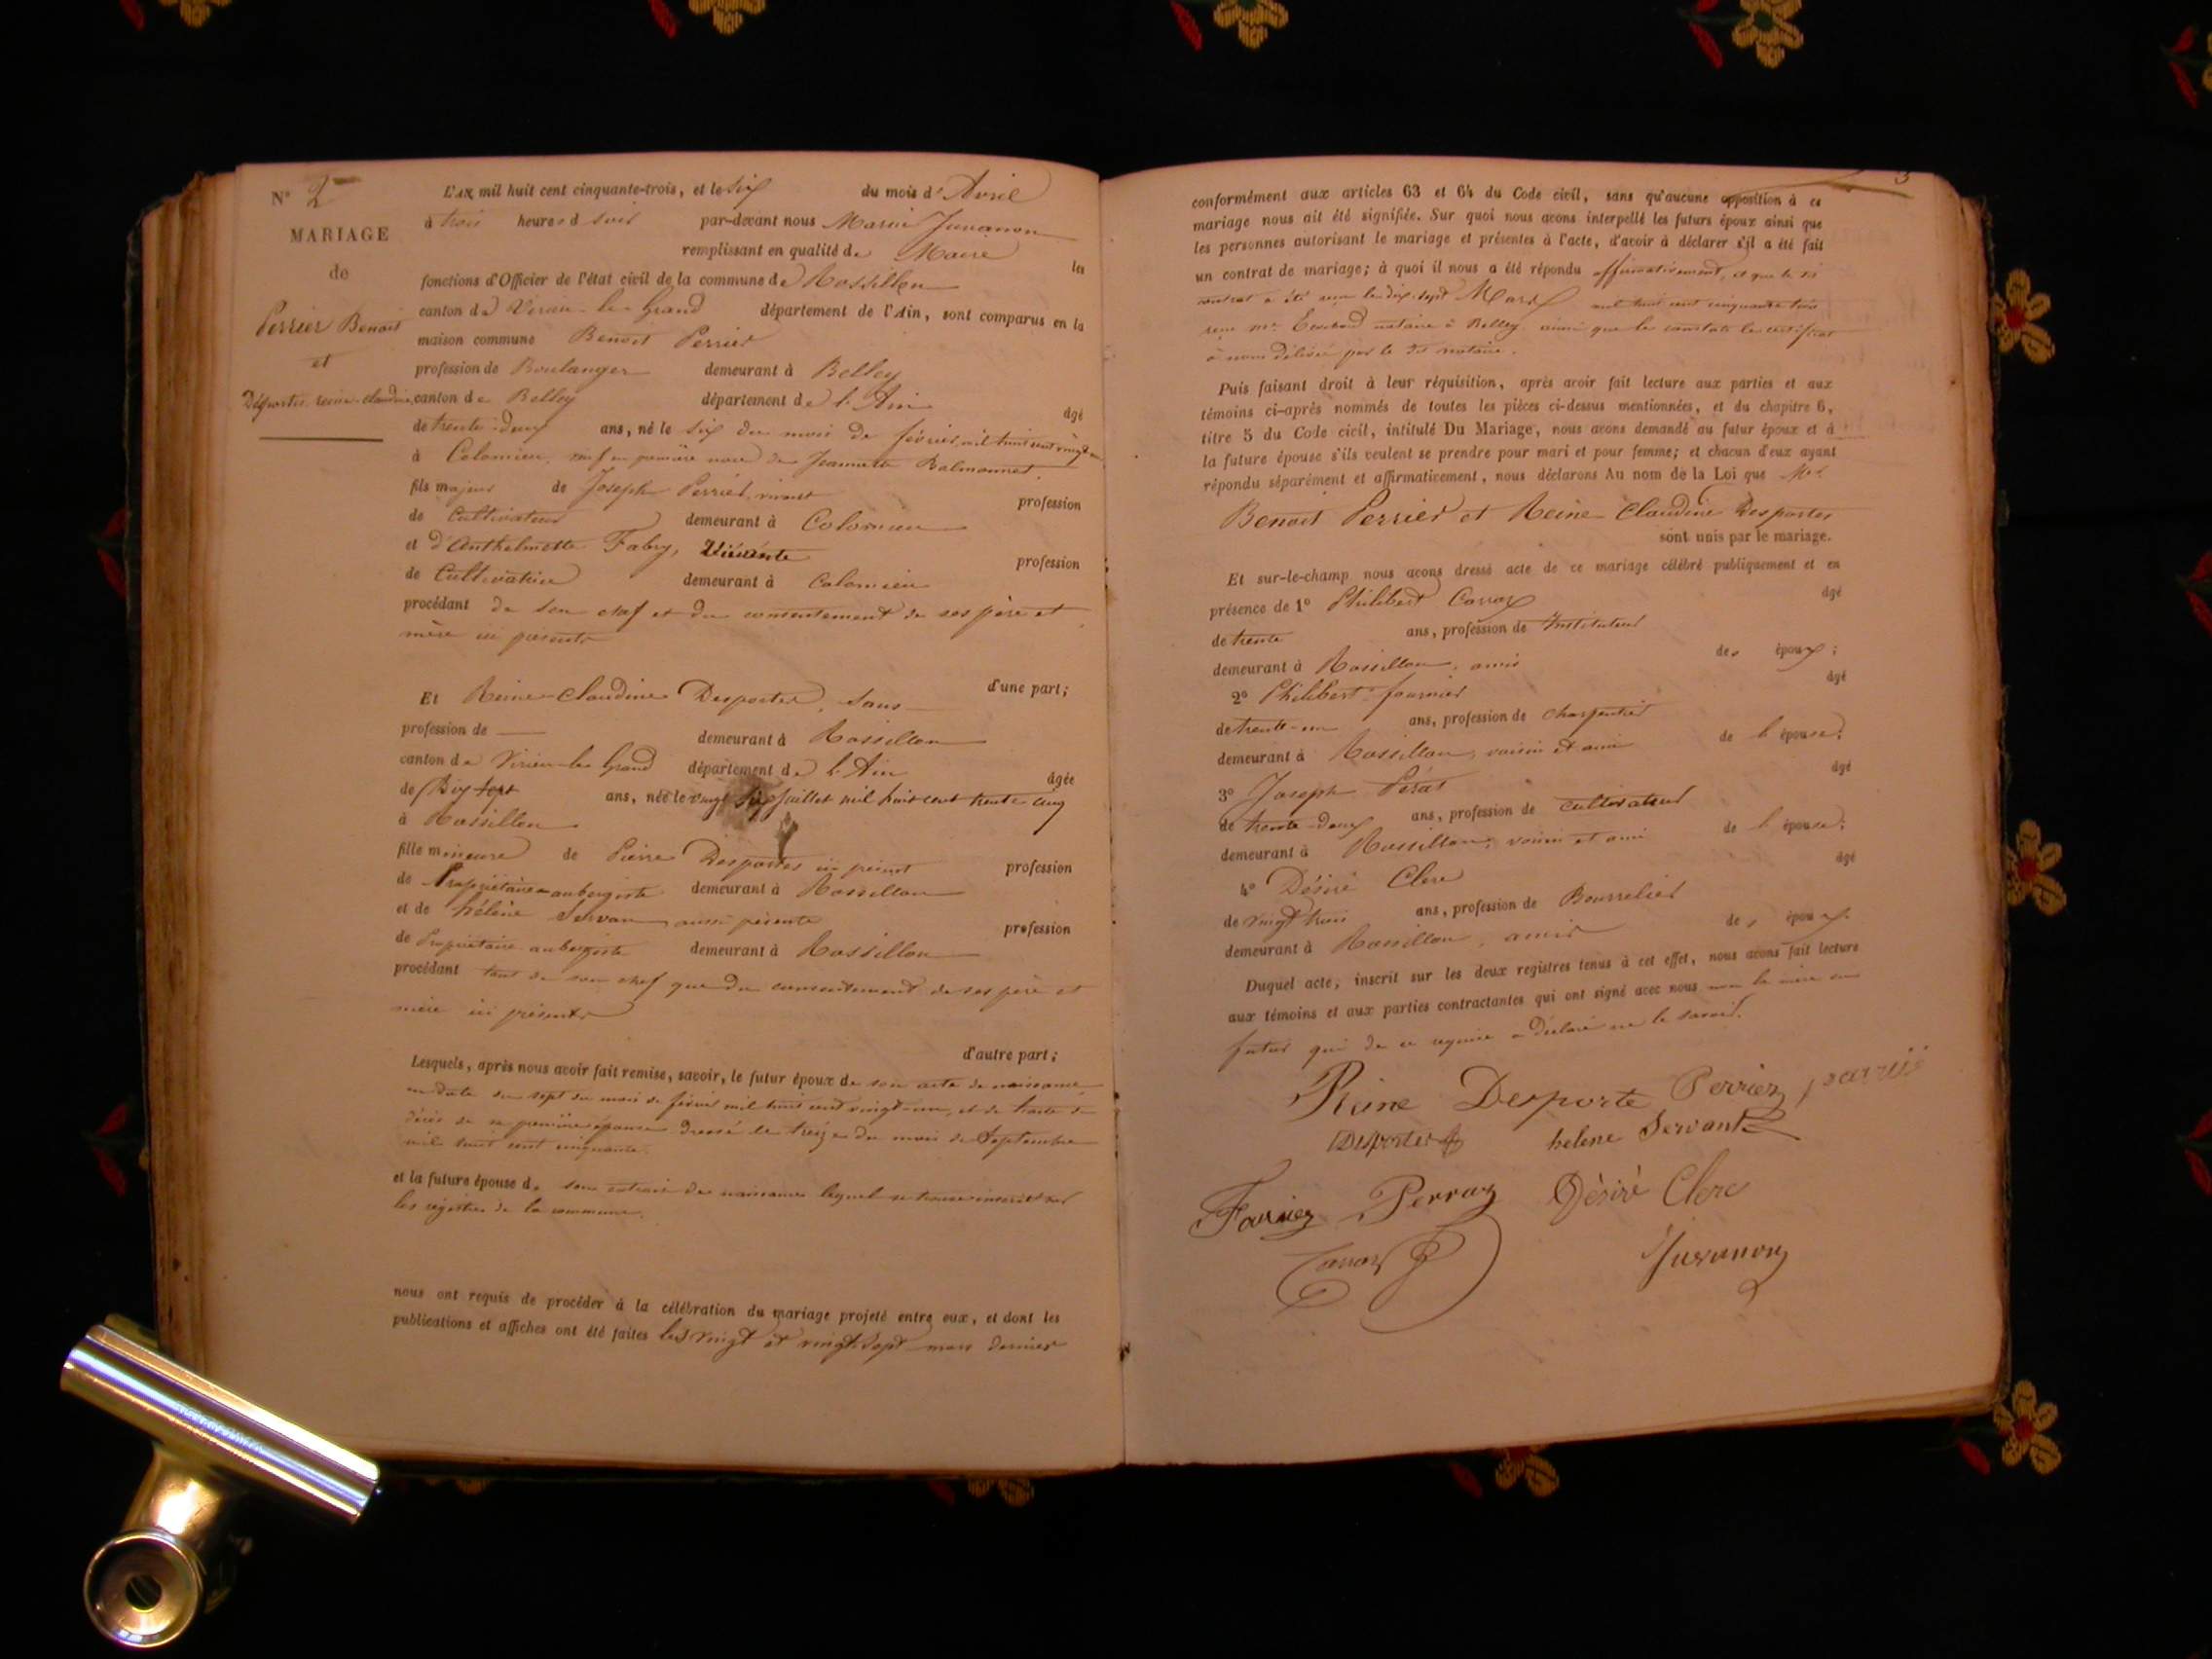 N° 2
MARIAGE
de
Perrier Benoit
et
Desportes reine-claudine
L'AN mil huit cent cinquante-trois, et le Six du mois d' Avril
à trois heures d soir par-devant nous Marin Juvanon
remplissant en qualité de Maire les
fonctions d'Officier de l'état civil de la commune de Rossillon
canton de Virieu-le-Grand département de l'Ain, sont comparus en la
maison commune Benoit Perrier
profession de Boulanger demeurant à Belley
canton de Belley département de l'Ain âgé
de trente-deux ans, né le six du mois de février mil huit cent vingt un
à Colomieu, veuf en première noce de Jeannette Balmonnet
fils majeur de Joseph Perrier, vivant profession
de Cultivateur demeurant à Colomieu
et d'Anthelmette Fabry, vivante profession
de Cultivatrice demeurant à Colomieu
procédant de son chef et du consentement de ses père et
mère ici présents
d'une part;
Et Reine-Claudine Desportes, sans
profession de — demeurant à Rossillon
canton de Virieu-le-Grand département de l'Ain âgée
de Dix-sept ans, née le vingt six juillet mil huit cent trente cinq
à Rossillon
fille mineure de Pierre Desportes ici présent profession
de Propriétaire aubergiste demeurant à Rossillon
et de hélène Servan aussi présente profession
de Propriétaire aubergiste demeurant à Rossillon
procédant tant de son chef que du consentement de ses père et
mère ici présents
d'autre part;
Lesquels, après nous avoir fait remise, savoir, le futur époux de son acte de naissance
en date du sept du mois de février mil huit cent vingt-un, et de l'acte de
décès de sa première épouse dressé le treize du mois de Septembre
mil huit cent cinquante.
et la future épouse d. son extrait de naissance lequel se trouve inscrit sur
les registres de la commune.
nous ont requis de procéder à la célébration du mariage projeté entre eux, et dont les
publications et affiches ont été faites les vingt et vingt-sept mars dernier
3
conformément aux articles 63 et 64 du Code civil, sans qu'aucune opposition à ce
mariage nous ait été signifiée. Sur quoi nous avons interpellé les futurs époux ainsi que
les personnes autorisant le mariage et présentes à l'acte, d'avoir à déclarer s'il a été fait
un contrat de mariage; à quoi il nous a été répondu affirmativement, et que le dit
contrat a été reçu le dix-sept Mars mil huit cent cinquante trois
notaire à Belley, ainsi que le constate le certificat
à nous délivré par le dit notaire.
Puis faisant droit à leur réquisition, après avoir fait lecture aux parties et aux
témoins ci-après nommés de toutes les pièces ci-dessus mentionnées, et du chapitre 6,
titre 5 du Code civil, intitulé Du Mariage, nous avons demandé au futur époux et à
la future épouse s'ils veulent se prendre pour mari et pour femme; et chacun d'eux ayant
répondu séparément et affirmativement, nous déclarons Au nom de la Loi que
Benoit Perrier et Reine Claudine Desportes
sont unis par le mariage.
Et sur-le-champ nous avons dressé acte de ce mariage célébré publiquement et en
présence de 1° Philibert Carraz âgé
de trente ans, profession de Instituteur
demeurant à Rossillon, amis des époux;
2° Philibert fournier âgé
de trente-un ans, profession de charpentier
demeurant à Rossillon, voisin et ami de l'épouse;
3° Joseph Péraz âgé
de trente-deux ans, profession de cultivateur
demeurant à Rossillon, voisin et ami de l'épouse;
4° Désiré Clerc âgé
de vingt trois ans, profession de Bourrelier
demeurant à Rossillon, amis des époux.
Duquel acte, inscrit sur les deux registres tenus à cet effet, nous avons fait lecture
aux témoins et aux parties contractantes qui ont signé avec nous non la mère du
futur qui de ce requise a déclaré ne le savoir.
Reine Desporte Perrier
Desportes helene Servant
Fournier Perraz Désiré Clerc
Carraz Juvanon